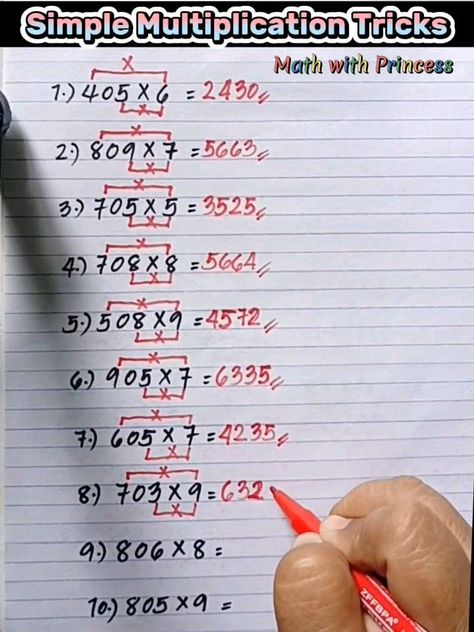 Simple Multiplication Tricks
Math with Princess
x
1.) 405 x 6 = 2430
x
x
2.) 809 x 7 = 5663
x
x
3.) 705 x 5 = 3525
x
x
4.) 708 x 8 = 5664
x
x
5.) 508 x 9 = 4572
x
x
6.) 905 x 7 = 6335
x
x
7.) 605 x 7 = 4235
x
x
8.) 703 x 9 = 632
x
9.) 806 x 8 =
10.) 805 x 9 =
ZFFBPA